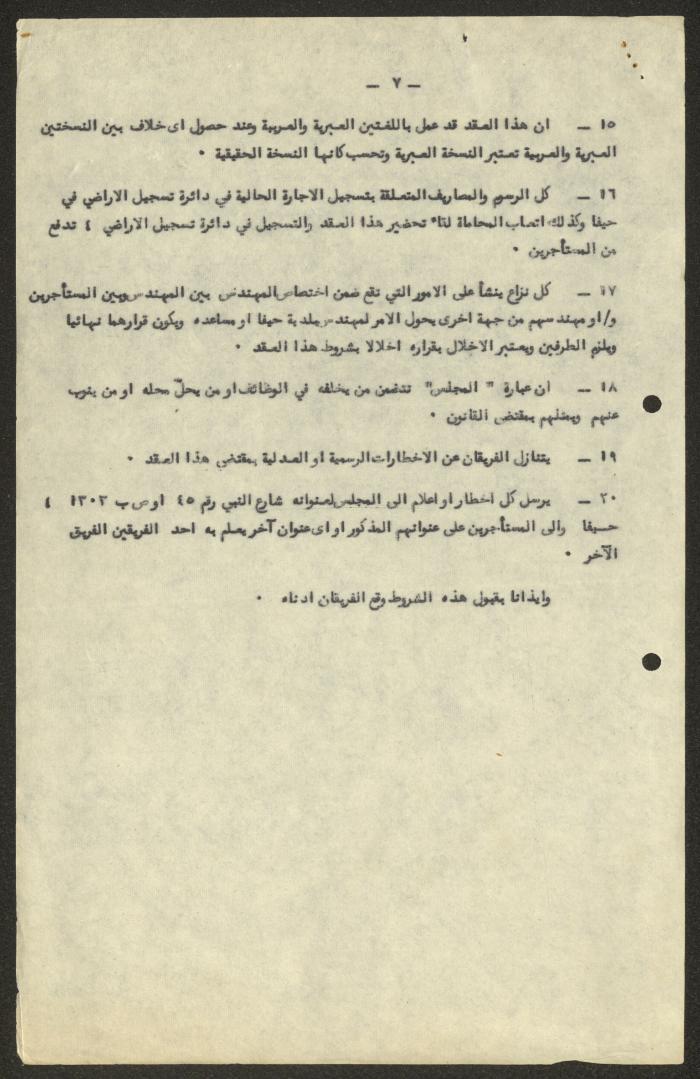 — ٧ —
١٥ — ان هذا العقد قد عمل باللغتين العبرية والعربية وعند حصول اى خلاف بين النسختين
العبرية والعربية تعتبر النسخة العبرية وتحسب كانها النسخة الحقيقية ٠
١٦ — كل الرسوم والمصاريف المتعلقة بتسجيل الاجارة الحالية في دائرة تسجيل الاراضي في
حيفا وكذلك اتعاب المحاماة لقاء تحضير هذا العقد والتسجيل في دائرة تسجيل الاراضي ، تدفع
من المستأجرين ٠
١٧ — كل نزاع ينشأ على الامور التي تقع ضمن اختصاص المهندس بين المهندس وبين المستأجرين
و/او مهندسهم من جهة اخرى يحول الامر لمهندس بلدية حيفا او مساعده ويكون قرارهما نهائيا
ويلزم الطرفين ويعتبر الاخلال بقراره اخلالا بشروط هذا العقد ٠
١٨ — ان عبارة " المجلس" تتضمن من يخلفه في الوظائف او من يحلّ محله او من ينوب
عنهم ويمثلهم بمقتضى القانون ٠
١٩ — يتنازل الفريقان عن الاخطارات الرسمية او العدلية بمقتضى هذا العقد ٠
٢٠ — يرسل كل اخطار او اعلام الى المجلس لعنوانه شارع النبي رقم ٤٥ او ص ب ١٣٠٣ ،
حيفا والى المستأجرين على عنوانهم المذكور او اى عنوان آخر يعلم به احد الفريقين الفريق
الآخر ٠
وايذانا بقبول هذه الشروط وقع الفريقان ادناه ٠